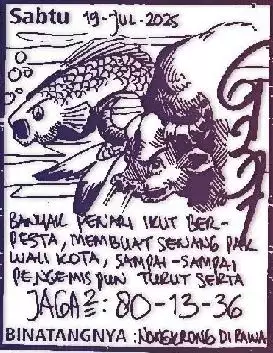 Sabtu 19-JUL-2025
BANYAK PENARI IKUT BER-
PESTA, MEMBUAT SENANG PAK
WALI KOTA, SAMPAI-SAMPAI
PENGEMIS PUN TURUT SERTA
JAGA2: 80-13-36
BINATANGNYA: NONGKRONG DI RAWA